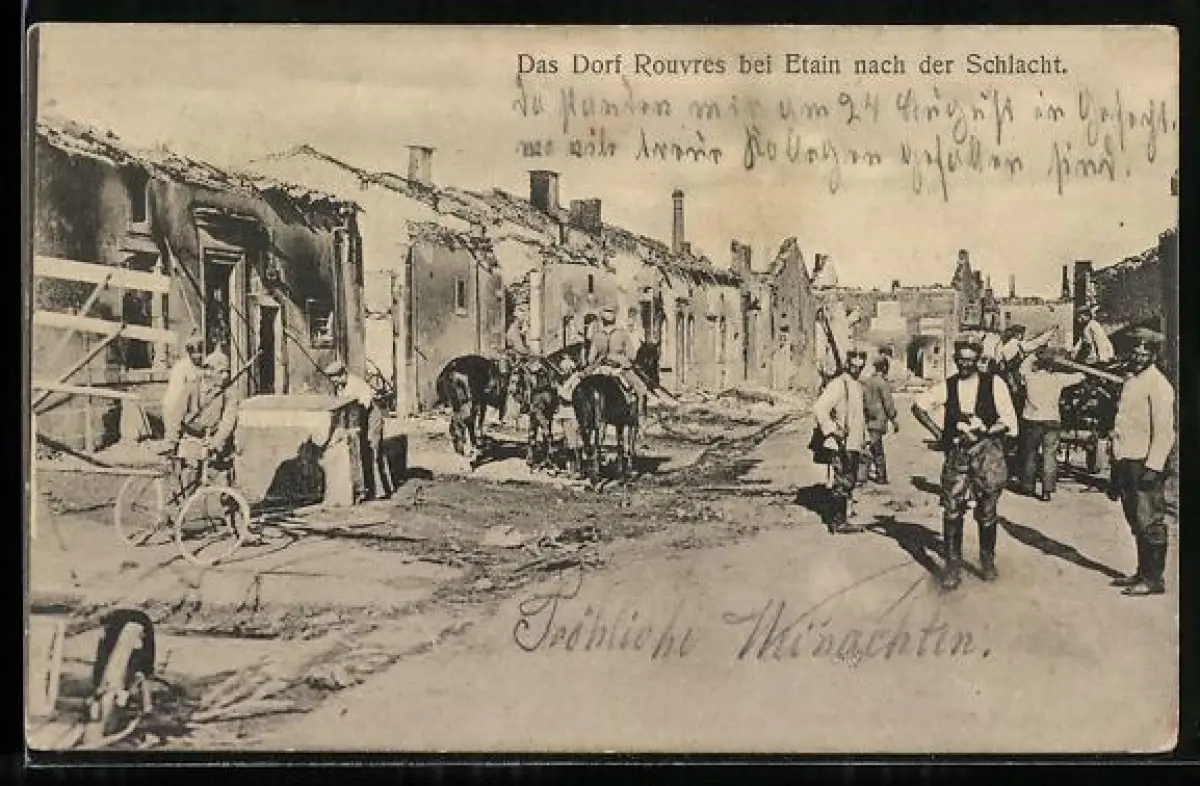 Das Dorf Rouvres bei Etain nach der Schlacht.
Da standen wir am 24 August in Gefecht,
wo alle treue Kolegen gefallen sind.
Fröhliche Weinachten.